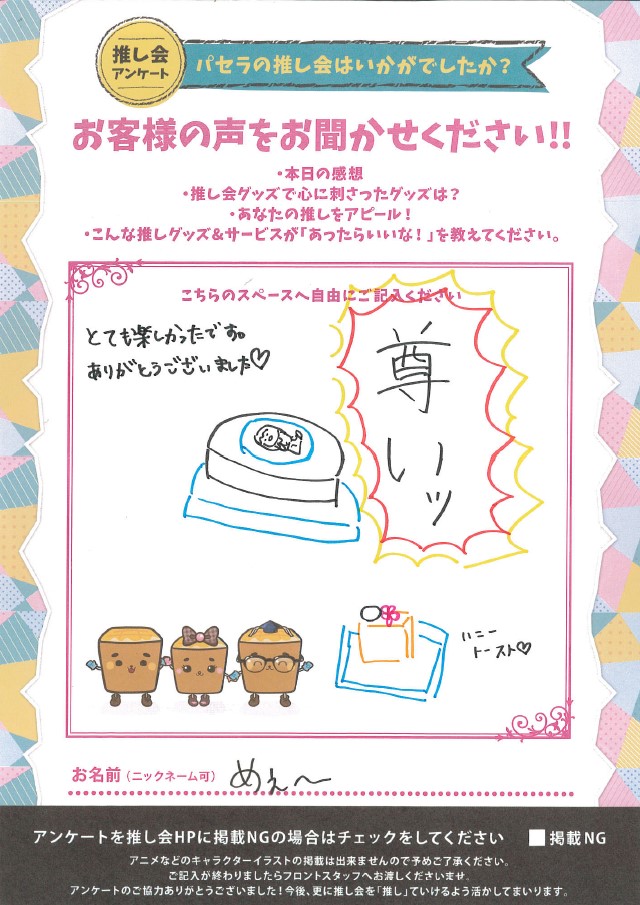 推し会
アンケート
パセラの推し会はいかがでしたか？
お客様の声をお聞かせください!!
・本日の感想
・推し会グッズで心に刺さったグッズは？
・あなたの推しをアピール！
・こんな推しグッズ&サービスが「あったらいいな！」を教えてください。
こちらのスペースへ自由にご記入ください
とても楽しかったです。
ありがとうございました♡
尊いッ
ハニー
トースト♡
お名前（ニックネーム可）
めぇ〜
アンケートを推し会HPに掲載NGの場合はチェックをしてください
掲載NG
アニメなどのキャラクターイラストの掲載は出来ませんので予めご了承ください。
ご記入が終わりましたらフロントスタッフへお渡しくださいませ。
アンケートのご協力ありがとうございました！今後、更に推し会を「推し」ていけるよう活かしてまいります。